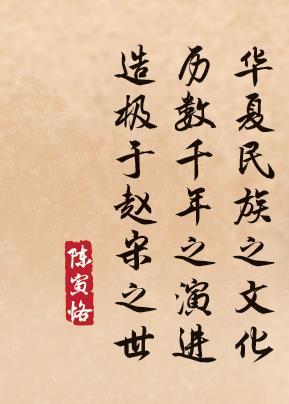 华夏民族之文化
历数千年之演进
造极于赵宋之世
陈寅恪